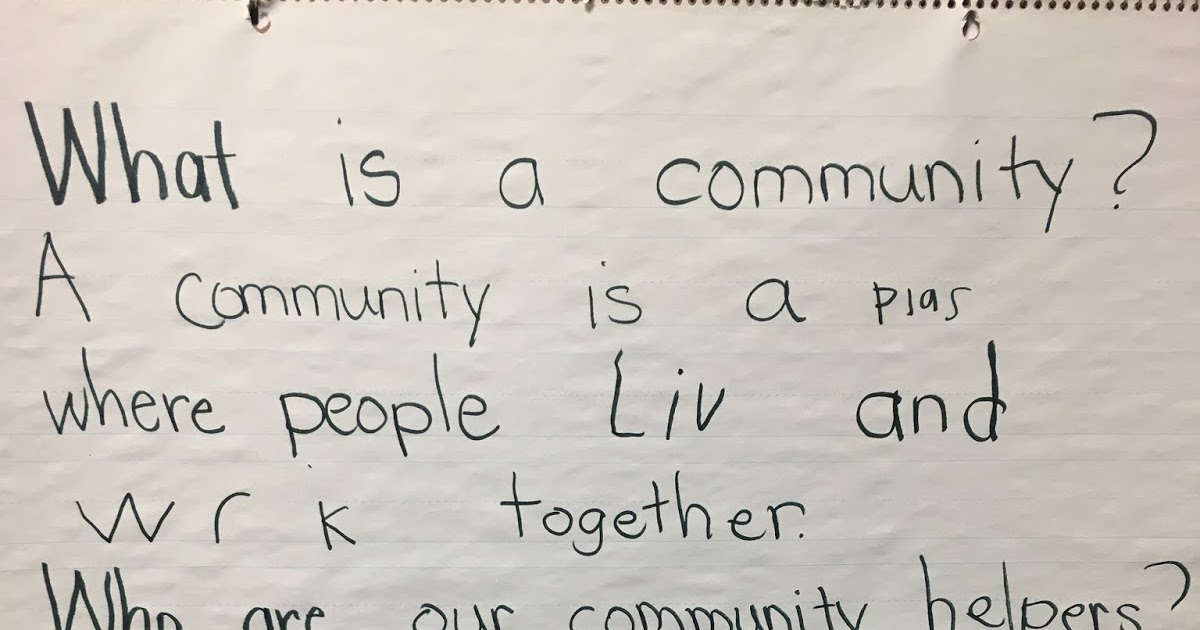 What is a community?
A community is a plas
where people Liv and
wrk together.
Who are our community helpers?